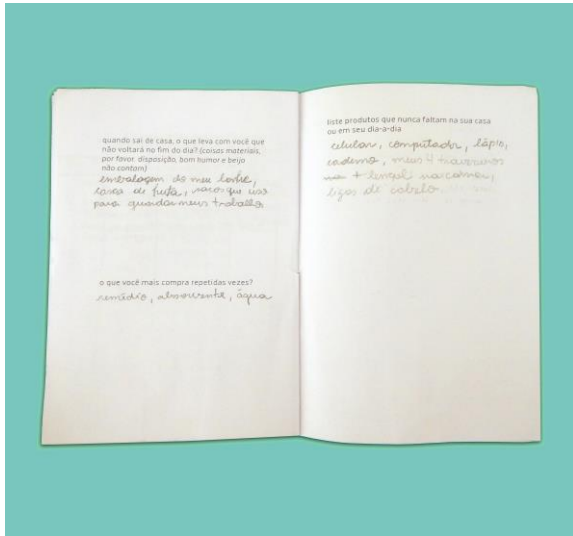 quando sai de casa, o que leva com você que
não voltará no fim do dia? (coisas materiais,
por favor. disposição, bom humor e beijo
não contam)
embalagem do meu lanche,
casca de fruta, sacos que uso
para guardar meus trabalhos
o que você mais compra repetidas vezes?
remédio, absorvente, água
liste produtos que nunca faltam na sua casa
ou em seu dia-a-dia
celular, computador, lápis,
caderno, meus 4 travesseiros
+ lençol na cama,
ligas de cabelo